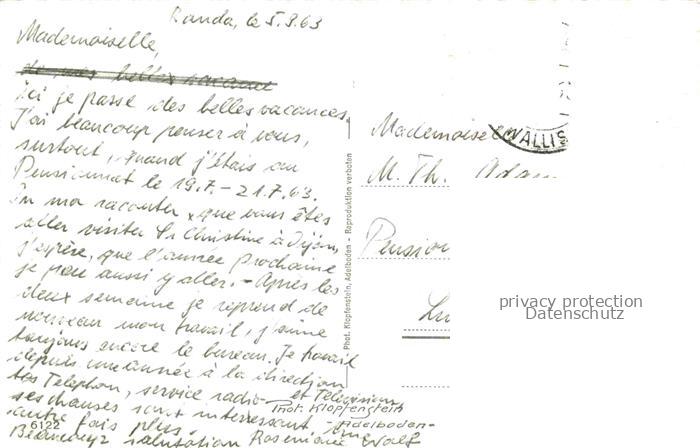 Randa, le 5.9.63
Mademoiselle,
de mes belles vacances
Ici je passe des belles vacances,
J'ai beaucoup penser à vous,
surtout, quand j'étais au
Pensionnat le 19.7. - 21.7.63.
On ma raconter que vous êtes
aller visiter St Christine à Dijon,
j'espère, que l'année prochaine
je peu aussi y aller. - Après les
deux semaine je reprend de
nouveau mon travail, j'aime
toujours encore le bureau. Je travail
depuis une année à la direction
des Telephon, service radio- et Télévision,
ses chauses sont interressant
autre fois plus.
Beaucoup salutation Rosemarie Wolf
Phot. Klopfenstein
Adelboden
6122
Phot. Klopfenstein, Adelboden - Reproduktion verboten
WALLIS
Mademoise
M. Th. Adam
Pension
Lu
privacy protection
Datenschutz